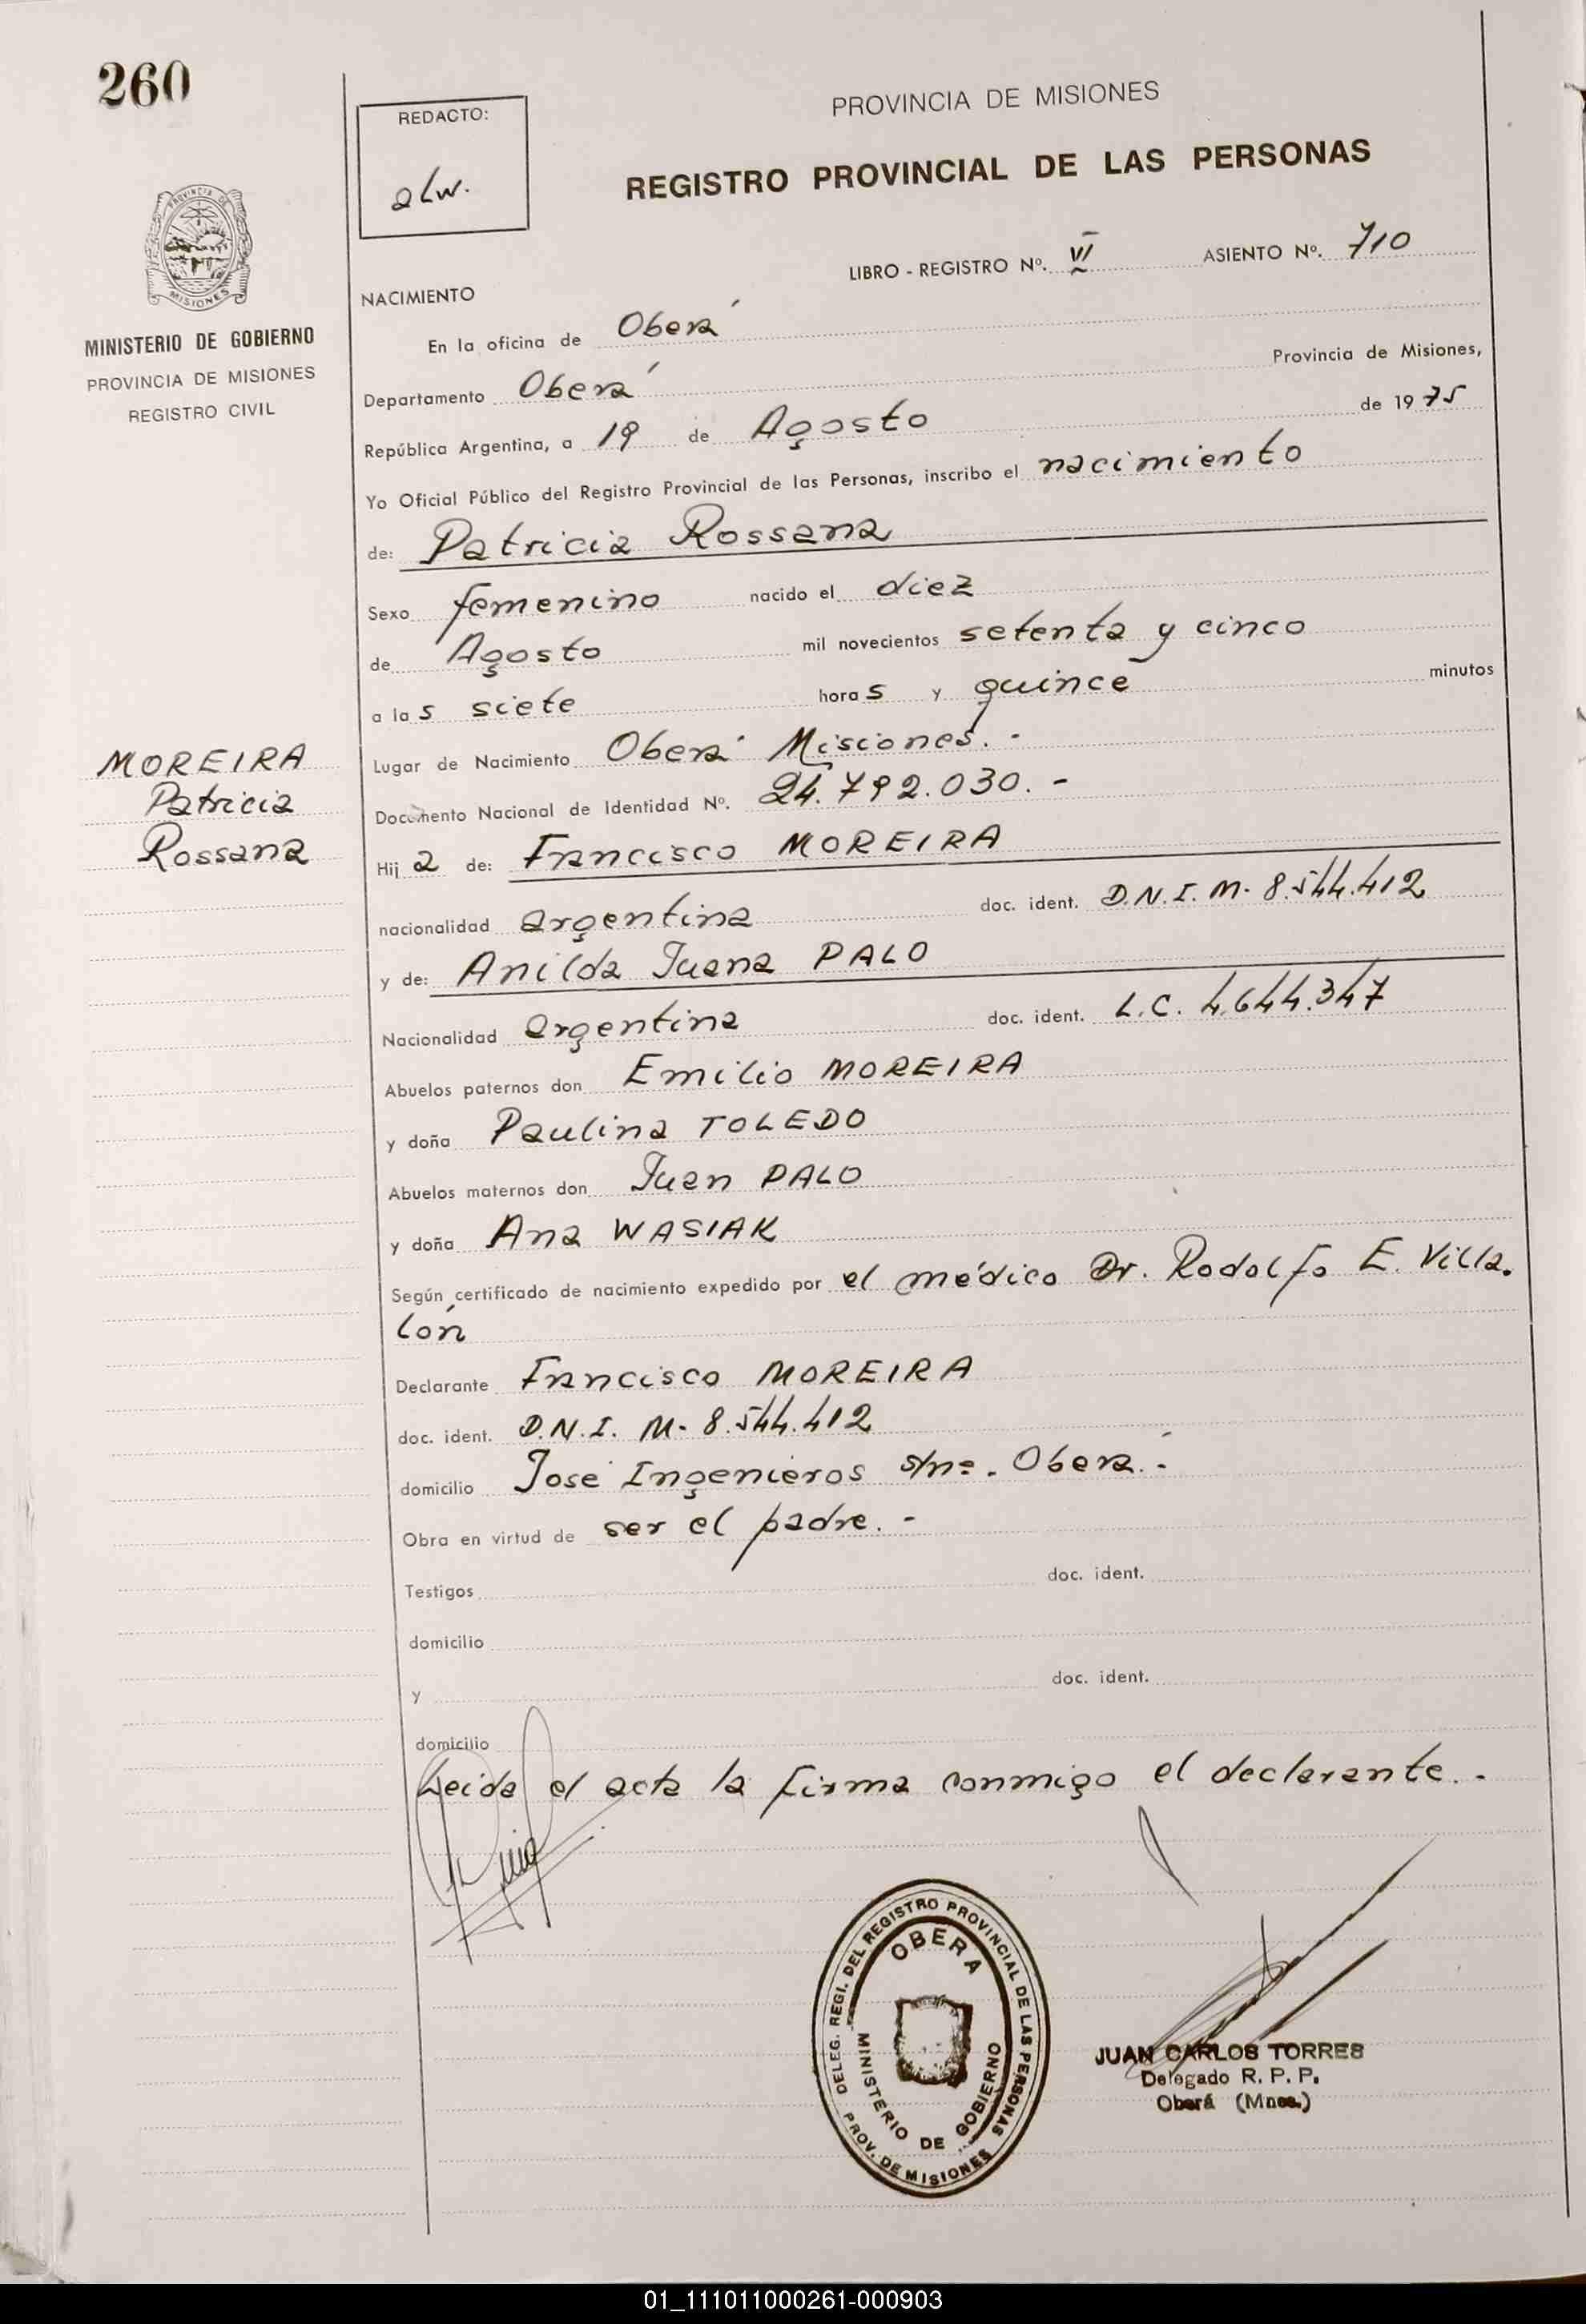 260
REDACTO:
alw.
PROVINCIA DE MISIONES
REGISTRO PROVINCIAL DE LAS PERSONAS
LIBRO - REGISTRO Nº. VI ASIENTO Nº. 710
PROVINCIA DE
MISIONES
MINISTERIO DE GOBIERNO
PROVINCIA DE MISIONES
REGISTRO CIVIL
NACIMIENTO
En la oficina de Oberá
Departamento Oberá Provincia de Misiones,
República Argentina, a 19 de Agosto de 1975
Yo Oficial Público del Registro Provincial de las Personas, inscribo el nacimiento
de: Patricia Rossana
Sexo femenino nacido el diez
de Agosto mil novecientos setenta y cinco
a las siete horas y quince minutos
Lugar de Nacimiento Oberá Misiones.-
MOREIRA
Patricia
Rossana
Documento Nacional de Identidad Nº. 24.792.030.-
Hija de: Francisco MOREIRA
nacionalidad argentina doc. ident. D.N.I. M- 8.544.412
y de: Anilda Juana PALO
Nacionalidad argentina doc. ident. L.C. 4.644.347
Abuelos paternos don Emilio MOREIRA
y doña Paulina TOLEDO
Abuelos maternos don Juan PALO
y doña Ana WASIAK
Según certificado de nacimiento expedido por el médico Dr. Rodolfo E. Villa-
lón
Declarante Francisco MOREIRA
doc. ident. D.N.I. M- 8.544.412
domicilio José Ingenieros s/nº. Oberá.-
Obra en virtud de ser el padre.-
Testigos doc. ident.
domicilio
y doc. ident.
domicilio
Leida el acta la firma conmigo el declarante.-
DELEG. REGI. DEL REGISTRO PROVINCIAL DE LAS PERSONAS
OBERA
MINISTERIO DE GOBIERNO
PROV. DE MISIONES
JUAN CARLOS TORRES
Delegado R. P. P.
Oberá (Mnes.)
01_111011000261-000903